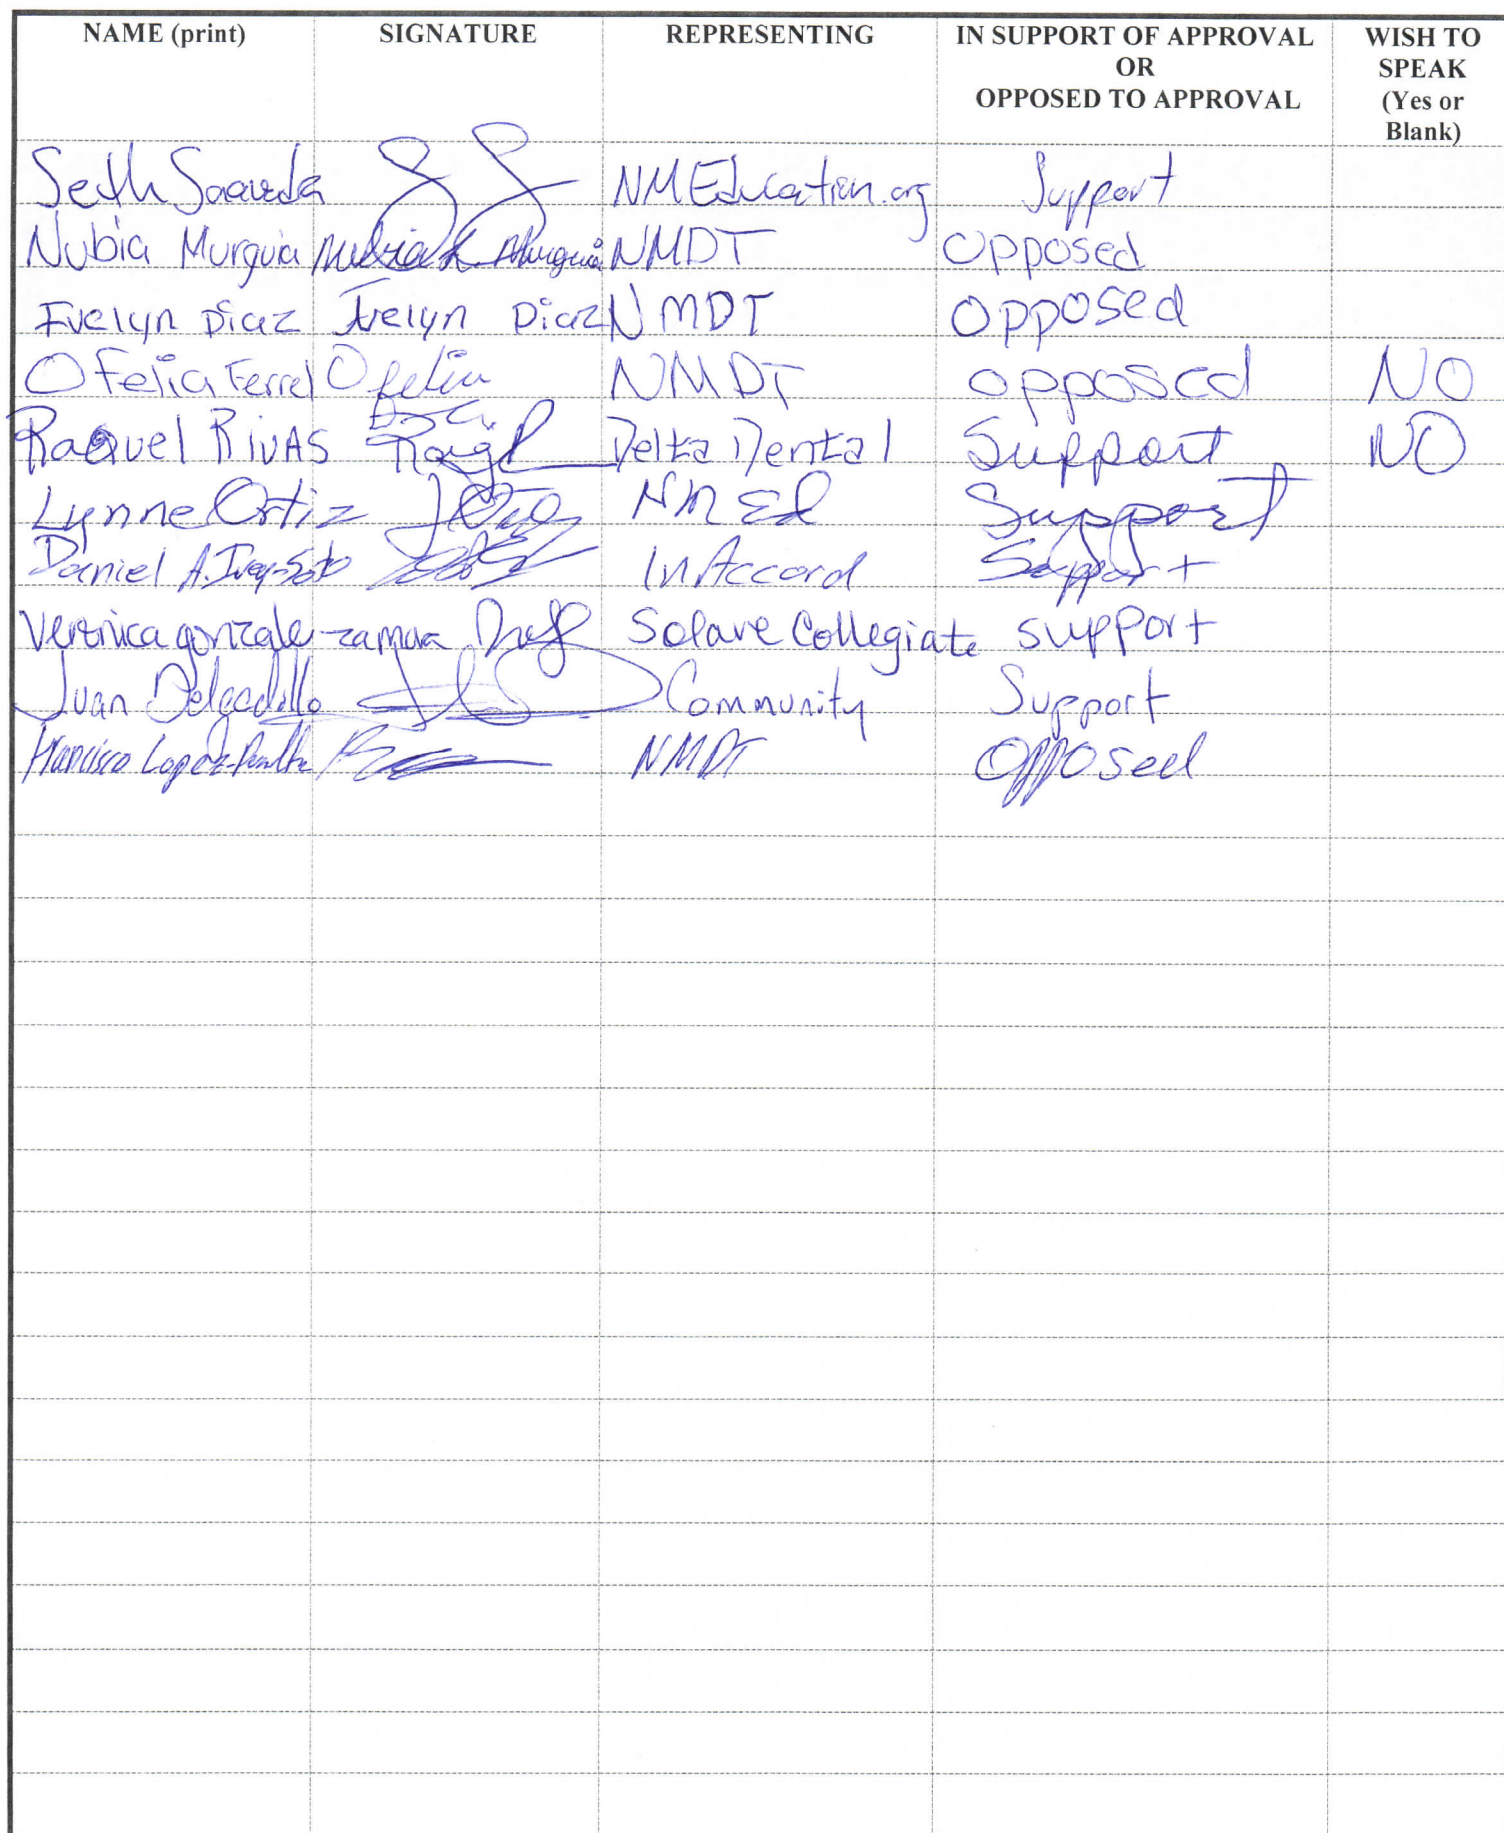 NAME (print) SIGNATURE REPRESENTING IN SUPPORT OF APPROVAL OR OPPOSED TO APPROVAL WISH TO SPEAK (Yes or Blank)
Seth Saavedra NMEducation.org Support
Nubia Murguia Nubia K. Murguia NMDT Opposed
Evelyn Diaz Evelyn Diaz NMDT Opposed
Ofelia Ferrel Ofelia NMDT opposed NO
Raquel Rivas Delta Dental Support NO
Lynne Ortiz NM Ed Support
Daniel A. Ivey-Soto InAccord Support
Veronica gonzale-zamora Solare Collegiate support
Juan Delgadillo Community Support
Francisco Lopez-Peralta NMDT Opposed